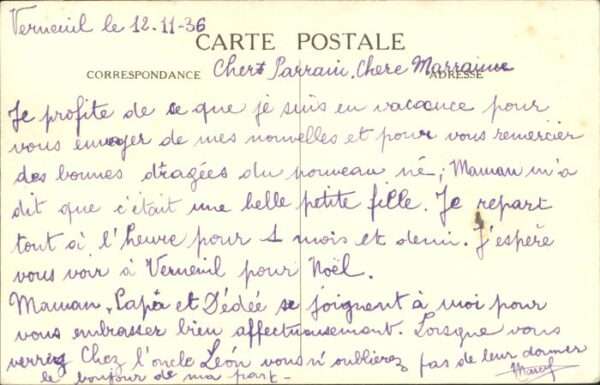 Verneuil le 12.11-36
CARTE POSTALE
CORRESPONDANCE ADRESSE
Chers Parrain, Chere Marraine
Je profite de ce que je suis en vacance pour
vous envoyer de mes nouvelles et pour vous remercier
des bonnes dragées du nouveau né; Maman m'a
dit que c'était une belle petite fille. Je repart
tout à l'heure pour 1 mois et demi. J'espère
vous voir à Verneuil pour Noël.
Maman, Papa et Dédée se joignent à moi pour
vous embrasser bien affectueusement. Lorsque vous
verrez Chez l'oncle Léon vous n'oublierez pas de leur donner
le bonjour de ma part-